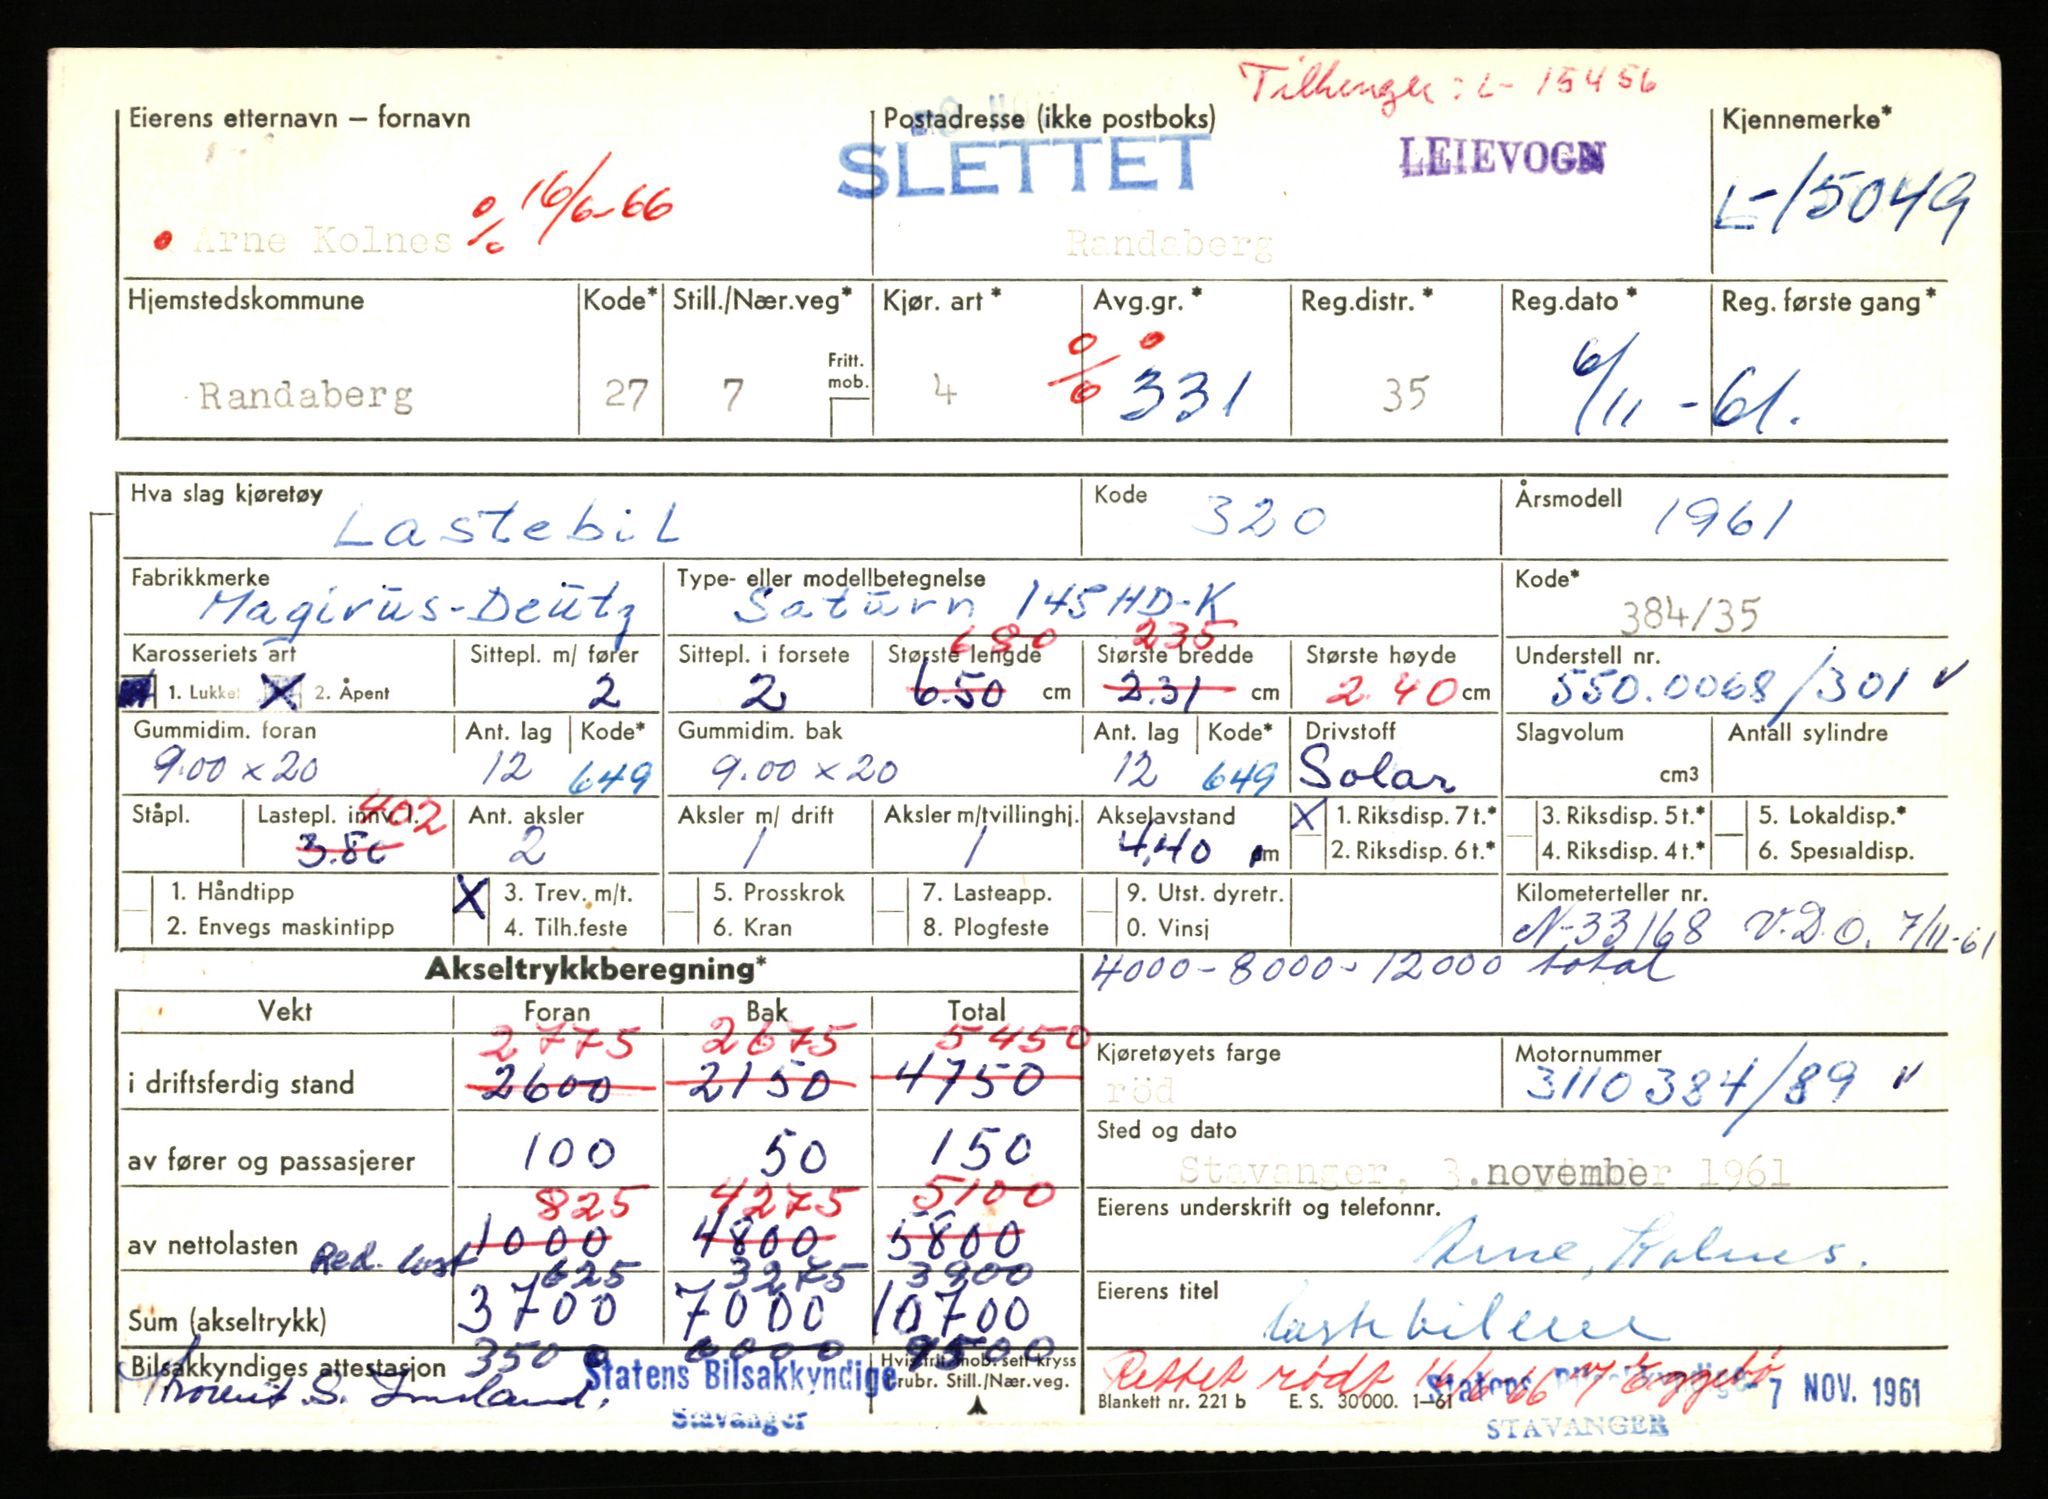 Tilhenger: L- 15456
Eierens etternavn – fornavn
Postadresse (ikke postboks)
Kjennemerke*
SLETTET
LEIEVOGN
L-15049
Arne Kolnes % 16/6-66
Randaberg
Hjemstedskommune Kode* Still./Nær.veg* Kjør. art * Avg.gr. * Reg.distr. * Reg.dato * Reg. første gang*
Fritt. mob.
Randaberg 27 7 4 % 331 35 6/11 -61.
Hva slag kjøretøy Kode Årsmodell
Lastebil 320 1961
Fabrikkmerke Type- eller modellbetegnelse Kode*
Magirus-Deutz Saturn 145HD-K 384/35
680 235
Karosseriets art Sittepl. m/ fører Sittepl. i forsete Største lengde Største bredde Største høyde Understell nr.
1. Lukket X 2. Åpent 2 2 6.50 cm 2.31 cm 2.40 cm 550.0068/301 v
Gummidim. foran Ant. lag Kode* Gummidim. bak Ant. lag Kode* Drivstoff Slagvolum Antall sylindre
9.00 x 20 12 649 9.00 x 20 12 649 Solar cm3
402
Ståpl. Lastepl. innv. l. Ant. aksler Aksler m/ drift Aksler m/tvillinghj. Akselavstand X 1. Riksdisp. 7 t.* 3. Riksdisp. 5 t.* 5. Lokaldisp.*
3.80 2 1 1 4,40 m 2. Riksdisp. 6 t.* 4. Riksdisp. 4 t.* 6. Spesialdisp.
1. Håndtipp X 3. Trev. m/t. 5. Prosskrok 7. Lasteapp. 9. Utst. dyretr. Kilometerteller nr.
2. Envegs maskintipp 4. Tilh.feste 6. Kran 8. Plogfeste 0. Vinsj N-33168 V.D.O. 7/11-61
Akseltrykkberegning*
4000-8000-12000 total
Vekt Foran Bak Total
2775 2675 5450
i driftsferdig stand 2600 2150 4750
Kjøretøyets farge Motornummer
röd 3110384/89 v
av fører og passasjerer 100 50 150
Sted og dato
Stavanger, 3.november 1961
825 4275 5100
av nettolasten 1000 4800 5800
Eierens underskrift og telefonnr.
Arne Kolnes.
Red. last 625 3275 3900
Sum (akseltrykk) 3700 7000 10700
Eierens titel
lastebileier
3500 6000 9500
Bilsakkyndiges attestasjon
Statens Bilsakkyndige
Stavanger
Hvis fritt mob. sett kryss
i rubr. Still./Nær.veg.
Rettet rødt 16/6-66
Blankett nr. 221 b E. S. 30'000. 1-61
Statens Bilsakkyndige
STAVANGER
7 NOV. 1961